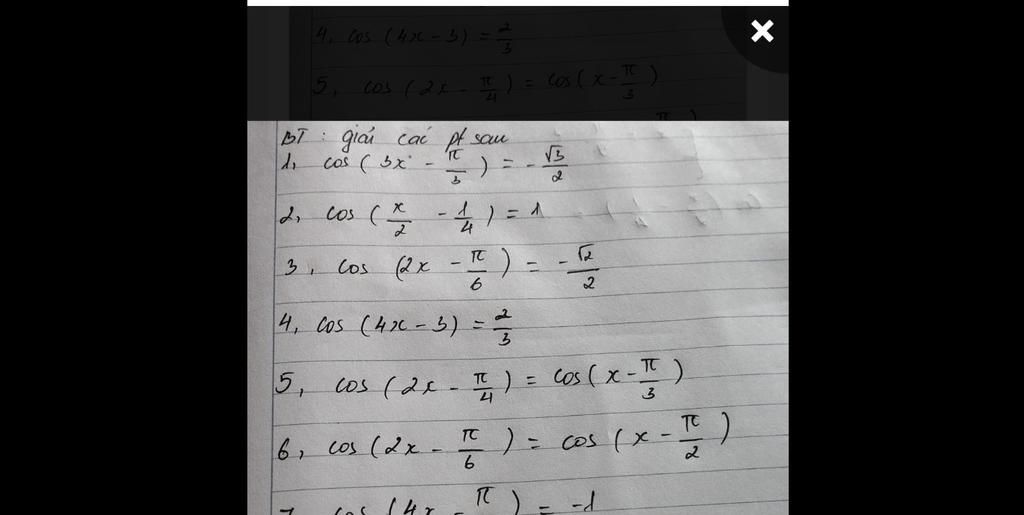 4, cos (4x - 3) = 2/3
5, cos (2x - π/4) = cos (x - π/3)
BT : giải các pt sau
1, cos (3x - π/3) = - √3/2
2, cos (x/2 - 1/4) = 1
3, cos (2x - π/6) = - √2/2
4, cos (4x - 3) = 2/3
5, cos (2x - π/4) = cos (x - π/3)
6, cos (2x - π/6) = cos (x - π/2)
7, cos (4x - π ) = -1